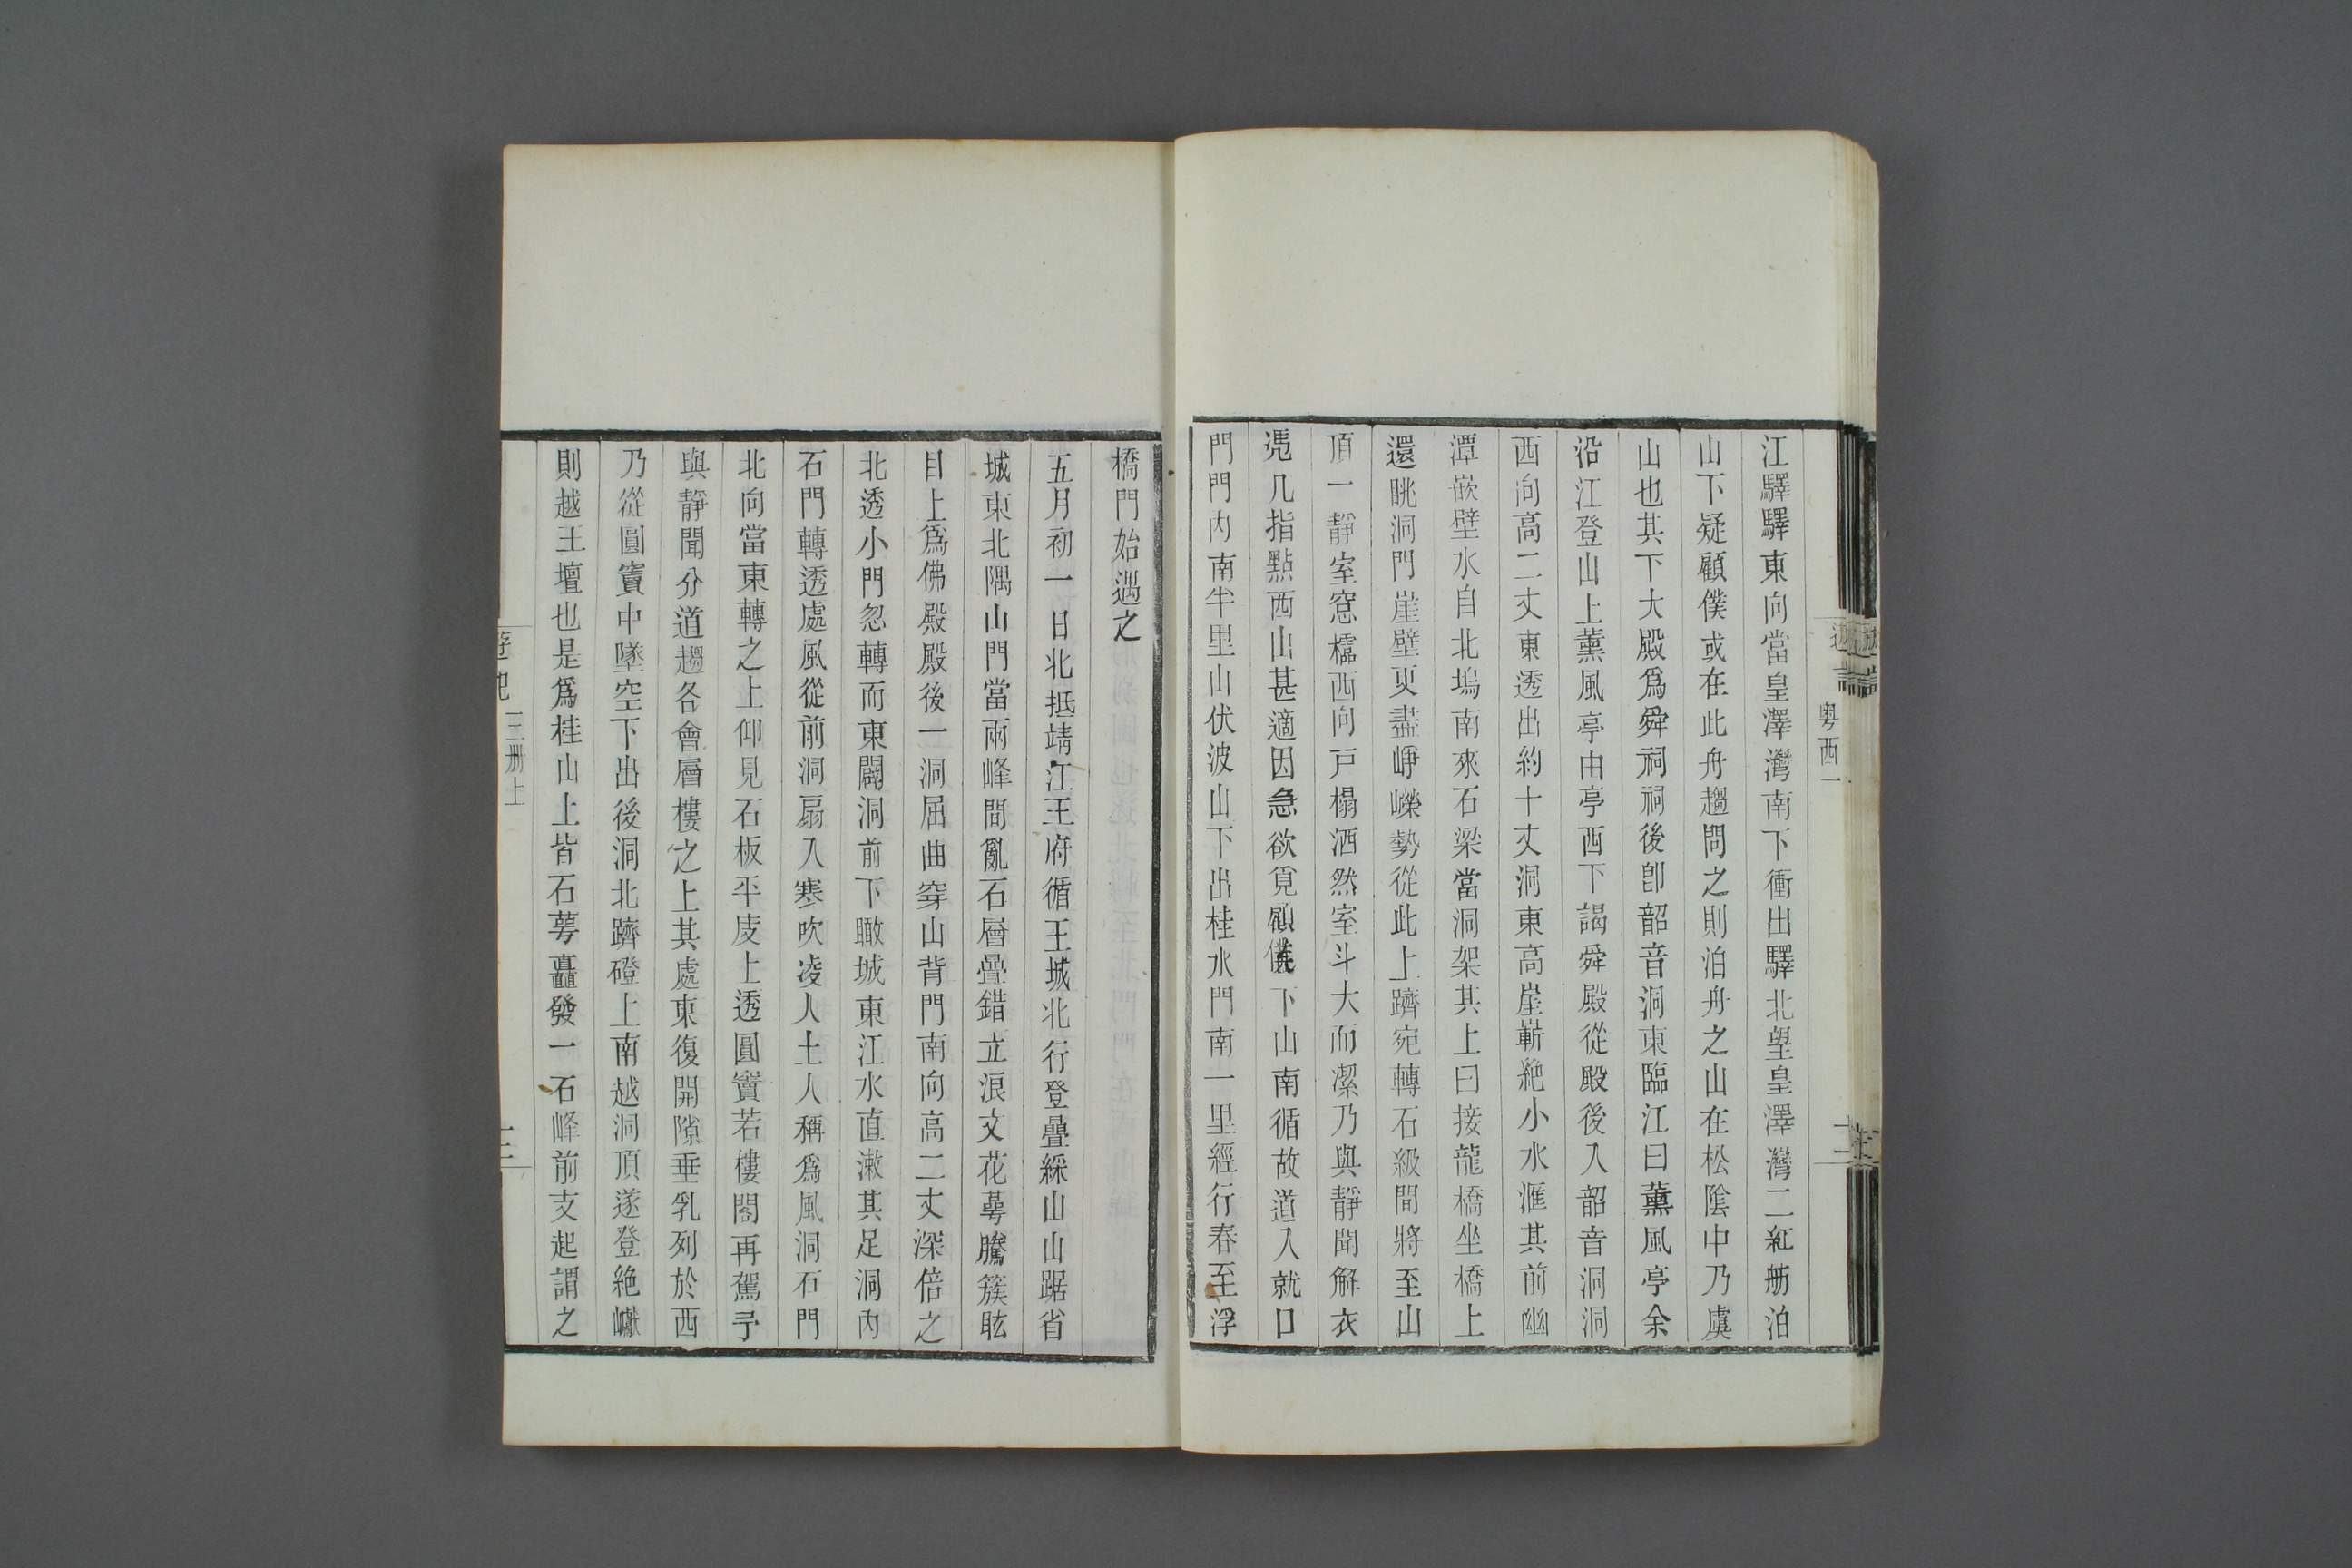 粤西一
江驛驛東向當皇澤灣南下衝出驛北望皇澤灣二紅舫泊
山下疑顧僕或在此舟趨問之則泊舟之山在松陰中乃虞
山也其下大殿爲舜祠祠後卽韶音洞東臨江曰薰風亭余
沿江登山上薰風亭由亭西下謁舜殿從殿後入韶音洞洞
西向高二丈東透出約十丈洞東高崖嶄絶小水滙其前幽
潭嵌壁水自北塢南來石梁當洞架其上曰接龍橋坐橋上
還眺洞門崖壁更盡崢嶸勢從此上躋宛轉石級間將至山
頂一靜室窓櫺西向戸榻洒然室斗大而潔乃與靜聞解衣
凭几指點西山甚適因急欲覓顧僕下山南循故道入就日
門門內南半里山伏波山下出桂水門南一里經行春至浮
橋門始遇之
五月初一日北抵靖江王府循王城北行登疊綵山山踞省
城東北隅山門當兩峰間亂石層疊錯立浪文花萼騰簇眩
目上爲佛殿殿後一洞屈曲穿山背門南向高二丈深倍之
北透小門忽轉而東闢洞前下瞰城東江水直漱其足洞內
石門轉透處風從前洞扇入寒吹凌人土人稱爲風洞石門
北向當東轉之上仰見石板平庋上透圓竇若樓閣再駕予
與靜聞分道趨各會層樓之上其處東復開隙垂乳列於西
乃從圓竇中墜空下出後洞北躋磴上南越洞頂遂登絶巘
則越王壇也是爲桂山上皆石萼矗發一石峰前支起謂之
遊記
三册上